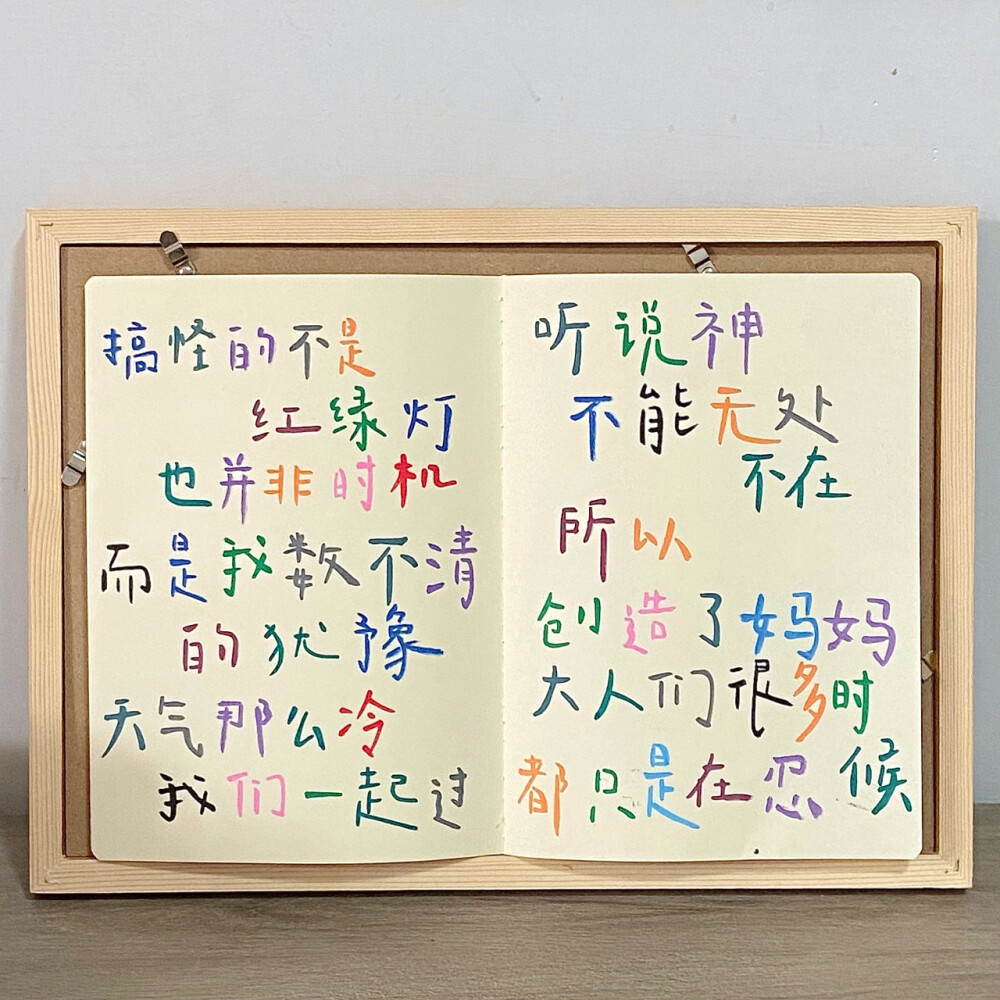 搞怪的不是
红绿灯
也并非时机
而是我数不清
的犹豫
天气那么冷
我们一起过
听说神
不能无处
不在
所以
创造了妈妈
大人们很多时
候
都只是在忍